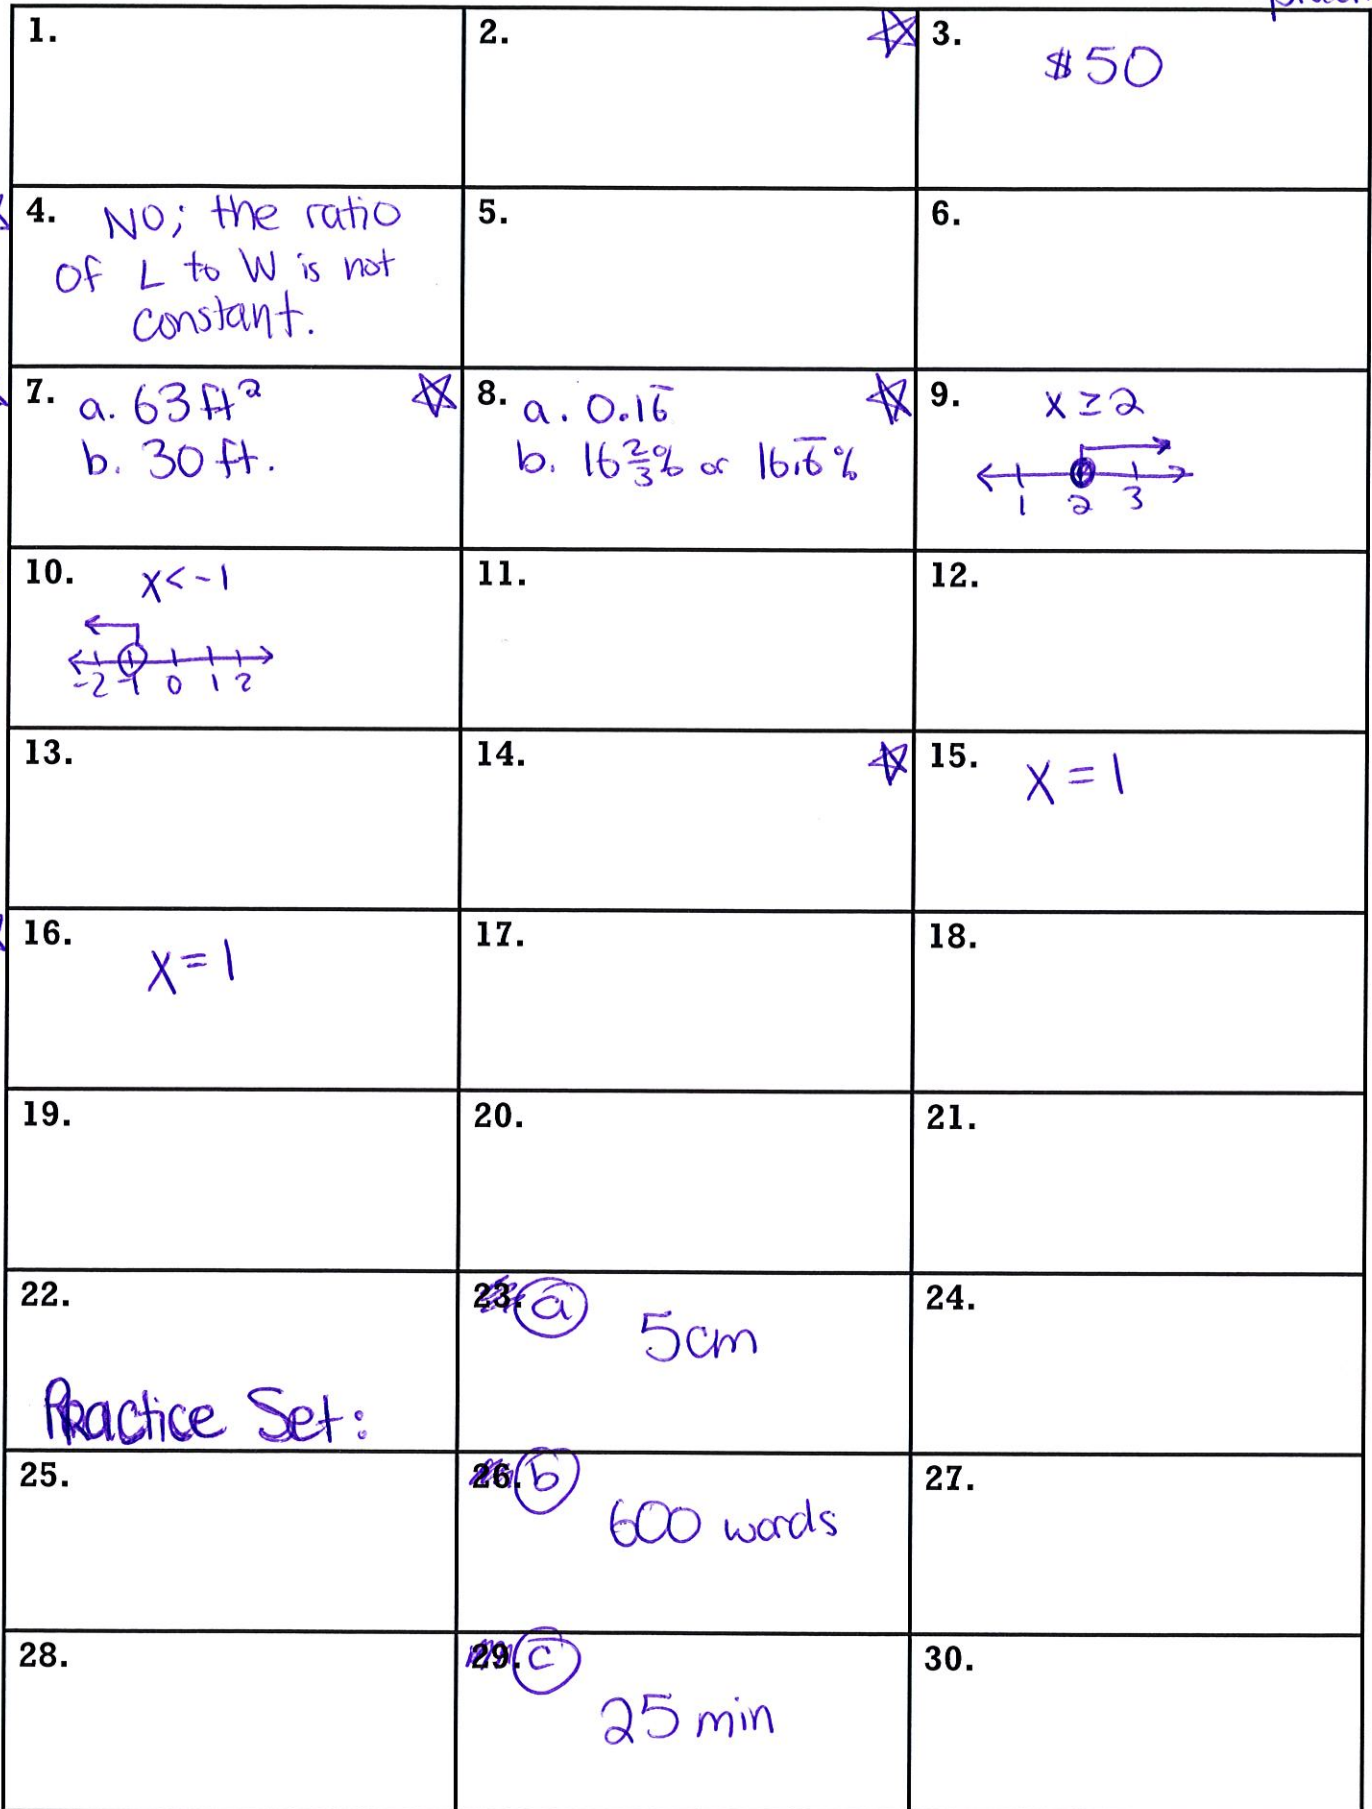 1.
2.
3. $50
4. NO; the ratio
of L to W is not
constant.
5.
6.
7. a. 63 ft²
b. 30 ft.
8. a. 0.16̅
b. 16 2/3% or 16.6̅%
9. x ≥ 2
1 2 3
10. x < -1
-2 -1 0 1 2
11.
12.
13.
14.
15. x = 1
16. x = 1
17.
18.
19.
20.
21.
22.
Practice Set:
23. a 5cm
24.
25.
26. b 600 words
27.
28.
29. c 25 min
30.